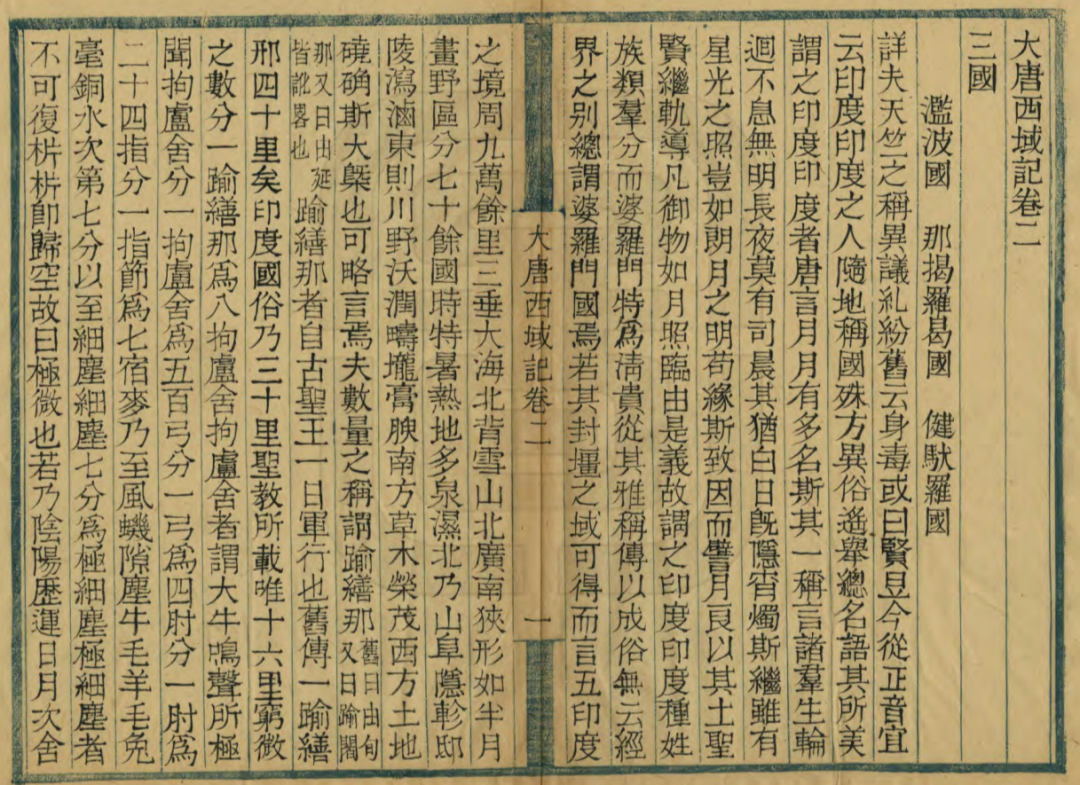 大唐西域記卷二
三國
濫波國 那揭羅曷國 健馱羅國
詳夫天竺之稱異議糺紛舊云身毒或曰賢豆今從正音宜
云印度印度之人隨地稱國殊方異俗遙舉總名語其所美
謂之印度印度者唐言月月有多名斯其一稱言諸羣生輪
迴不息無明長夜莫有司晨其猶白日旣隱宵燭斯繼雖有
星光之照豈如朗月之明苟緣斯致因而譬月良以其土聖
賢繼軌導凡御物如月照臨由是義故謂之印度印度種姓
族類羣分而婆羅門特爲淸貴從其雅稱傳以成俗無云經
界之别總謂婆羅門國焉若其封壃之域可得而言五印度
大唐西域記卷二 一
之境周九萬餘里三垂大海北背雪山北廣南狹形如半月
畫野區分七十餘國時特暑熱地多泉濕北乃山阜隱軫邸
陵瀉滷東則川野沃潤疇壠膏腴南方草木榮茂西方土地
磽确斯大槩也可略言焉夫數量之稱謂踰繕那舊曰由旬又曰踰闍
那又曰由延皆訛畧也踰繕那者自古聖王一日軍行也舊傳一踰繕
邢四十里矣印度國俗乃三十里聖教所載唯十六里窮微
之數分一踰繕那爲八拘盧舍拘盧舍者謂大牛鳴聲所極
聞拘盧舍分一拘盧舍爲五百弓分一弓爲四肘分一肘爲
二十四指分一指節爲七宿麥乃至風蟣隙塵牛毛羊毛兔
毫銅水次第七分以至細塵細塵七分爲極細塵極細塵者
不可復析析卽歸空故曰極微也若乃陰陽歷運日月次舍